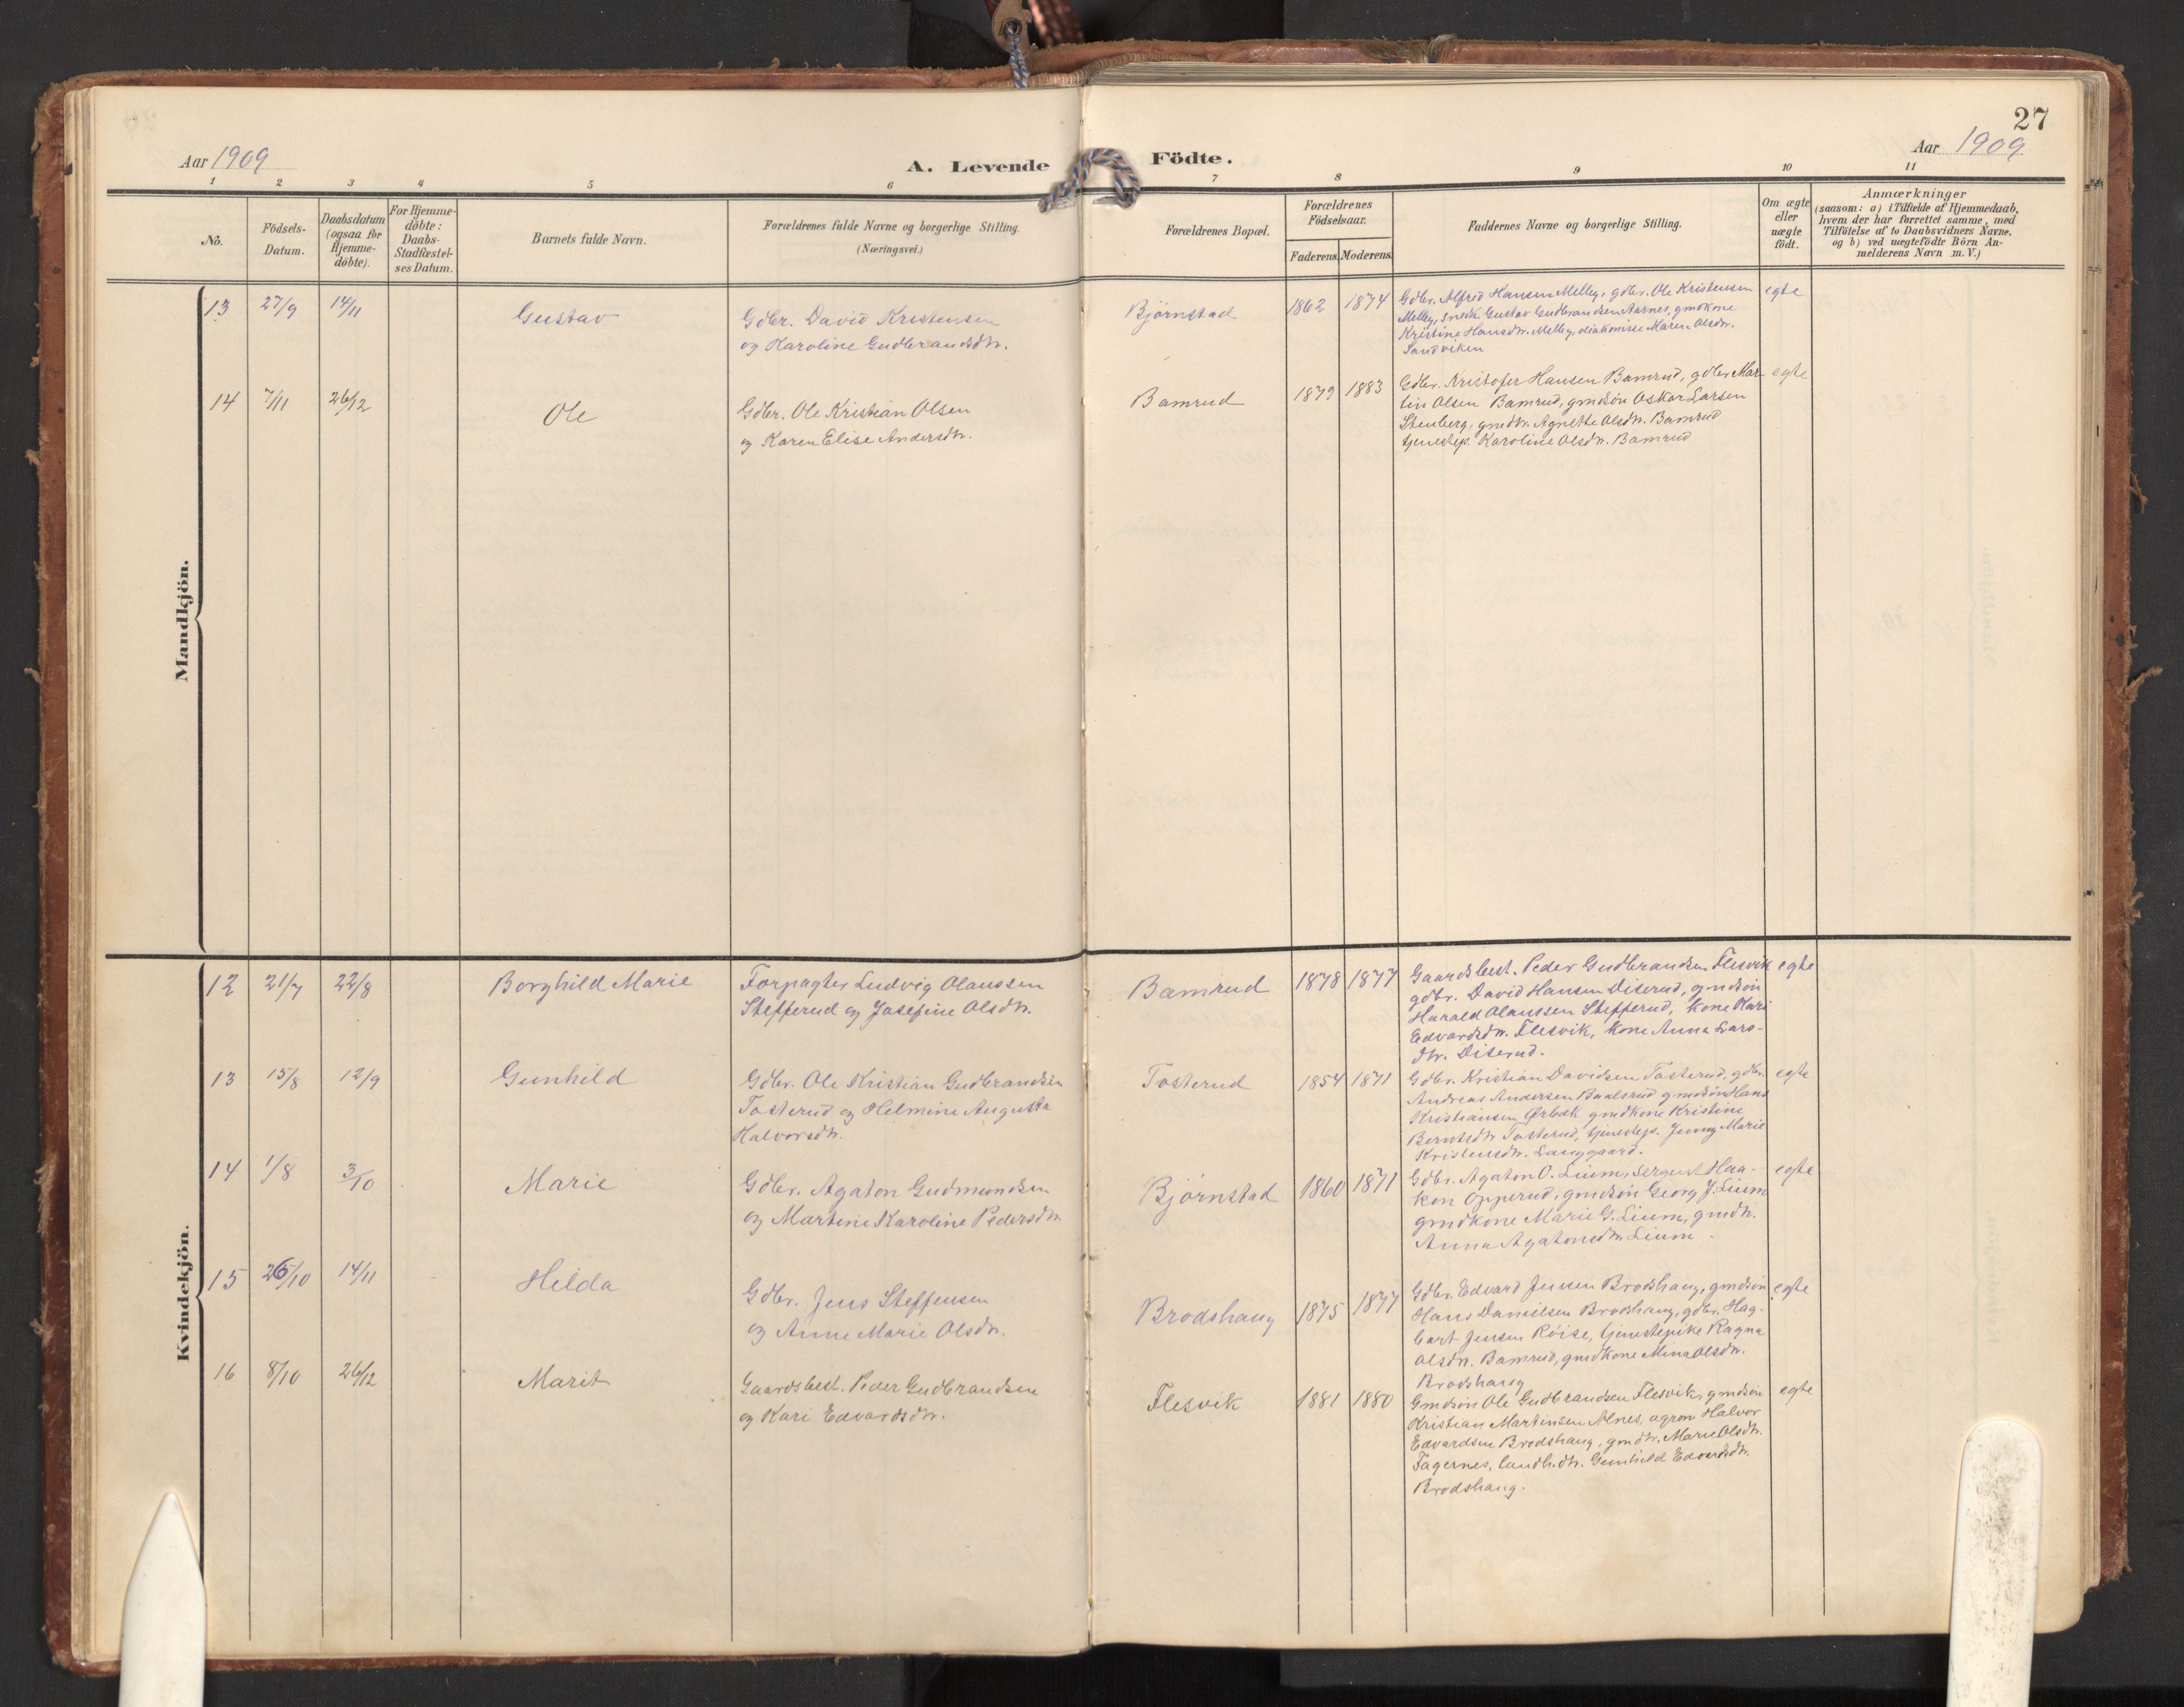 27
Aar 1909
A. Levende Födte.
Aar 1909
1 2 3 4 5 6 7 8 9 10 11
No.
Födsels-
Datum.
Daabsdatum
(ogsaa for
Hjemme-
döbte).
For Hjemme-
döbte:
Daabs-
Stadfæstel-
ses Datum.
Barnets fulde Navn.
Forældrenes fulde Navne og borgerlige Stilling.
(Næringsvei.)
Forældrenes Bopæl.
Forældrenes
Födselsaar.
Faderens. Moderens.
Faddernes Navne og borgerlige Stilling.
Om ægte
eller
uægte
födt.
Anmærkninger
(saasom: a) i Tilfælde af Hjemmedaab,
hvem der har forrettet samme, med
Tilföielse af to Daabsvidners Navne,
og b) ved uægtefödte Börn An-
melderens Navn m. V.)
Mandkjön.
13 27/9 14/11
Gustav
Gdbr. David Kristensen
og Karoline Gudbrandsdtr.
Bjørnstad
1862 1874
Gdbr. Alfred Hansen Melby, gdbr. Ole Kristensen
Melby, snedk. Gustav Gudbrandsen Aarnes, gmdkone
Kristine Hansdtr. Melby, diakonisse Maren Olsdtr.
Sandviken
egte
14 7/11 26/12
Ole
Gdbr. Ole Kristian Olsen
og Karen Elise Andersdtr.
Bamrud
1879 1883
Gdbr. Kristofer Hansen Bamrud, gdbr. Mar-
tin Olsen Bamrud, gmdsön Oskar Larsen
Stenberg, gmdtr. Agnethe Olsdtr. Bamrud
tjenestep. Karoline Olsdtr. Bamrud
egte
Kvindekjön.
12 21/7 22/8
Borghild Marie
Forpagter Ludvig Olaussen
Stefferud og Josefine Olsdtr.
Bamrud
1878 1877
Gaardsbest. Peder Gudbrandsen Flesvik
gdbr. David Hansen Diserud, gmdsön
Harald Olaussen Stefferud, kone Kari
Edvardsdtr. Flesvik, kone Anna Lars-
dtr. Diserud.
egte
13 15/8 12/9
Gunhild
Gdbr. Ole Kristian Gudbrandsen
Tosterud og Helmine Augusta
Halvorsdtr.
Tosterud
1854 1871
Gdbr. Kristian Davidsen Tosterud, gdbr.
Andreas Andersen Baalsrud gmdsön Hans
Kristiansen Ørbæk gmdkone Kristine
Berntsdtr. Tosterud, tjenestep. Jenny Marie
Kristensdtr. Langgaard.
egte
14 1/8 3/10
Marie
Gdbr. Agaton Gudmundsen
og Martine Karoline Pedersdtr.
Bjørnstad
1860 1871
Gdbr. Agaton O. Lium, sergent Haa-
kon Opperud, gmdsön Georg J. Lium
gmdkone Marie G. Lium, gmdtr.
Anna Agatonsdtr. Lium.
egte
15 26/10 14/11
Hilda
Gdbr. Jens Steffensen
og Anne Marie Olsdtr.
Brodshaug
1875 1877
Gdbr. Edvard Jensen Brodshaug, gmdsön
Hans Danielsen Brodshaug, gdbr. Hag-
bart Jensen Röise, tjenestepike Ragna
Olsdtr. Bamrud, gmdkone Mina Olsdtr.
Brodshaug
egte
16 8/10 26/12
Marit
Gaardsbest. Peder Gudbrandsen
og Kari Edvardsdtr.
Flesvik
1881 1880
Gmdsön Ole Gudbrandsen Flesvik, gmdsön
Kristian Martinsen Alnes, agron. Halvor
Edvardsen Brodshaug, gmdtr. Marie Olsdtr.
Fagernes, landh.dtr. Gunhild Edvardsdtr.
Brodshaug.
egte